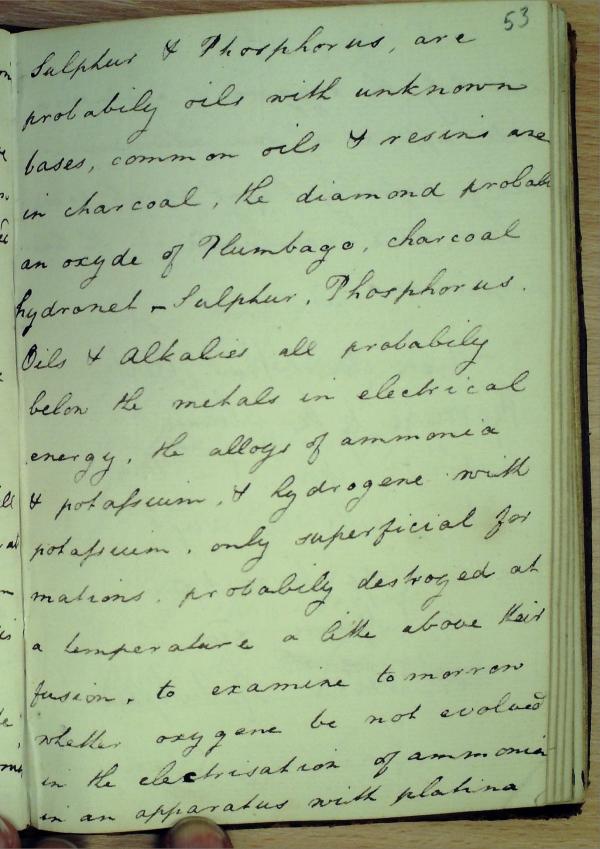 53
Sulphur & Phosphorus, are
probabily oils with unknown
bases, common oils & resins are
in charcoal, the diamond probab
an oxyde of Plumbago, charcoal
hydronet - Sulphur, Phosphorus.
Oils & Alkalies all probabily
below the metals in electrical
energy, the alloys of ammonia
& potassium, & hydrogene with
potassium, only superficial for
mations. probabily destroyed at
a temperature a little above their
fusion, to examine tomorrow
whether oxygene be not evolved
in the electrisation of ammonia
in an apparatus with platina